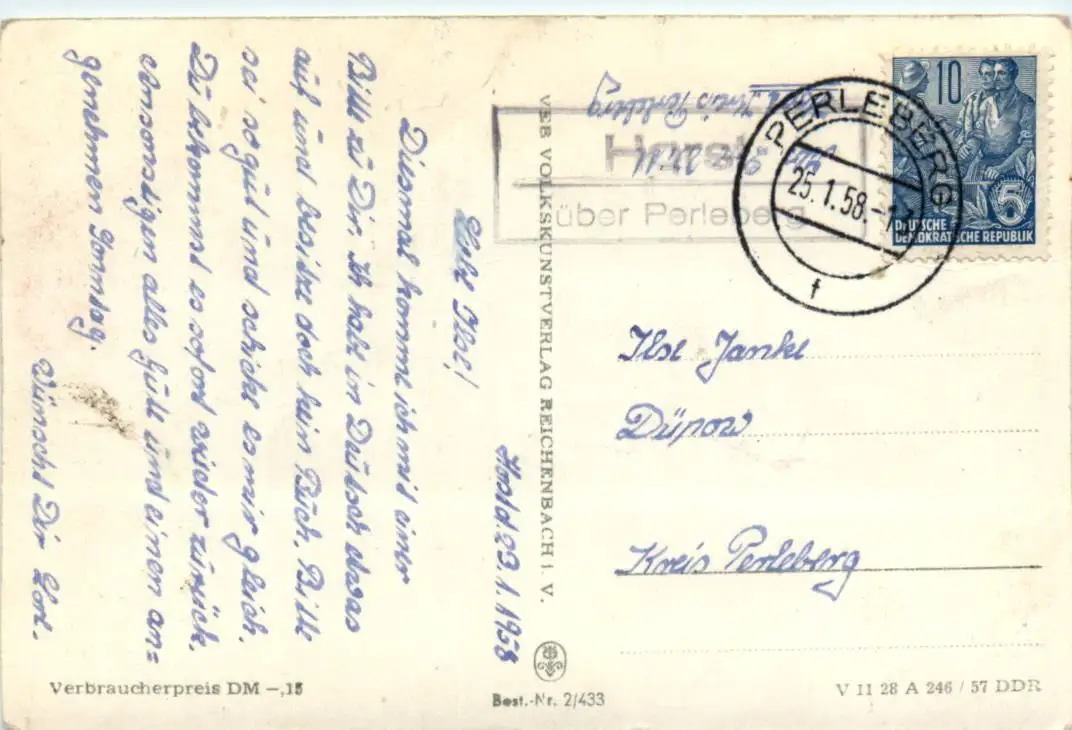 Horst d. 23.1.1958
Liebe Ilse!
Diesmal komme ich mit einer
Bitte zu Dir. Ich habe in Deutsch etwas
auf und besitze doch kein Buch. Bitte
sei so gut und schicke es mir gleich.
Du bekommst es sofort wieder zurück.
Ansonstigen alles Gute und einen an=
genehmen Sonntag.
Wünscht Dir Lore.
VEB VOLKSKUNSTVERLAG REICHENBACH I. V.
Horst
über Perleberg
Kreis Perleberg
PERLEBERG
25.1.58.-
f
10
5
DEUTSCHE
DEMOKRATISCHE REPUBLIK
Ilse Janke
Düpow
Kreis Perleberg
Verbraucherpreis DM –,15
Best.-Nr. 2/433
V 11 28 A 246 / 57 DDR